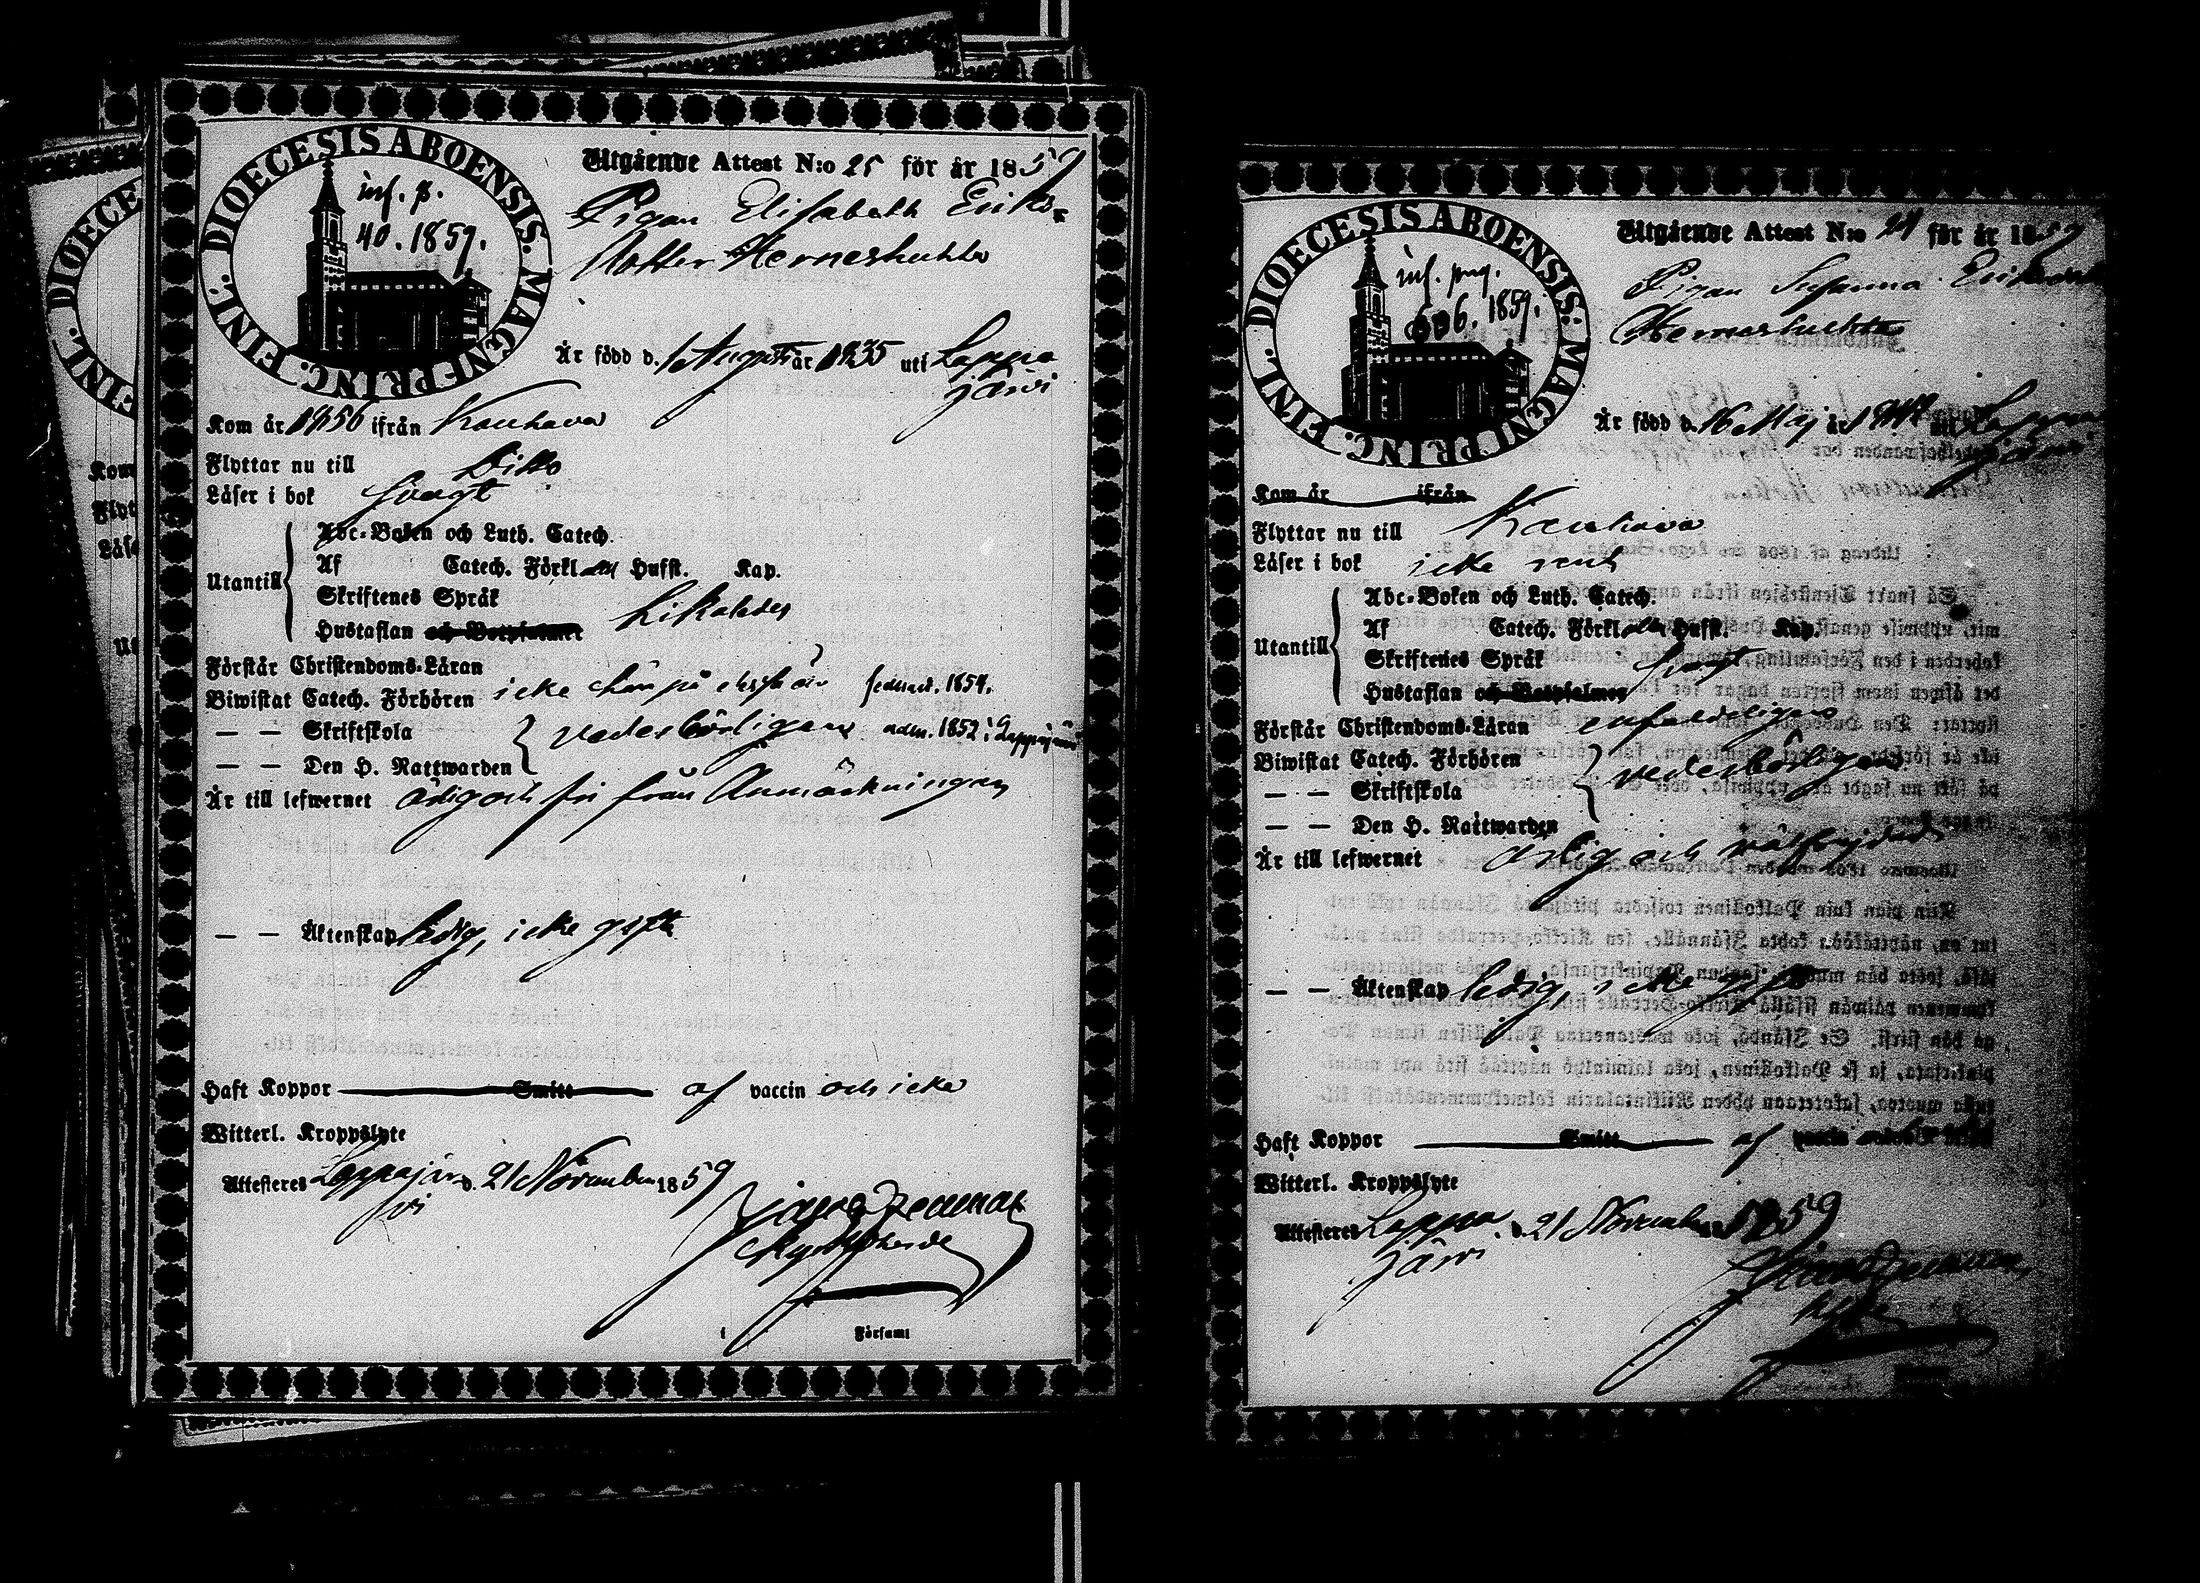 DIOECESIS ABOENSIS. MAGNI PRINC. FINL.
inf. p.
40. 1859.
Utgående Attest N:o 25 för år 1859
Pigan Elisabeth Eriks=
dotter Herneshuhta
Är född d. 1 Augusti år 1835 uti Lappa
järvi
Kom år 1856 ifrån Kauhava
Flyttar nu till Ditto
Läser i bok svagt
Utantill
Abc-Boken och Luth. Catech.
Af Catech. Förkl. Hufst. Kap.
Skriftenes Språk
Hustaflan och Botpsalmer Likaledes
Förstår Christendoms-Läran
Biwistat Catech. Förhören icke här på dessa år sednast. 1854.
— — Skriftskola vederbörligen adm. 1852 i Lappajärvi
— — Den H. Nattwarden
Är till lefwernet ärlig och fri från Anmärkningar
— — Äktenskap ledig, icke gift
Haft Koppor Smitt af vaccin och icke
Witterl. Kroppslyte
Attesteres Lappajär d. 21 November 1859
vi
i Församl
DIOECESIS ABOENSIS. MAGNI PRINC. FINL.
inf. pag.
606. 1859.
Utgående Attest N:o 24 för år 1859
Pigan Susanna
Herneshuhta
Är född d. 16 Maj år
Kom år ifrån
Flyttar nu till Kauhava
Läser i bok icke rent
Utantill
Abc-Boken och Luth. Catech.
Af Catech. Förkl. Hufst. Kap.
Skriftenes Språk svagt
Hustaflan och Botpsalmer
Förstår Christendoms-Läran enfaldeligen
Biwistat Catech. Förhören vederbörligen
— — Skriftskola
— — Den H. Nattwarden
Är till lefwernet ärlig och välfrejdad
— — Äktenskap ledig, icke gift
Haft Koppor Smitt af
Witterl. Kroppslyte
Attesteres Lappa d. 21 November 1859
järvi